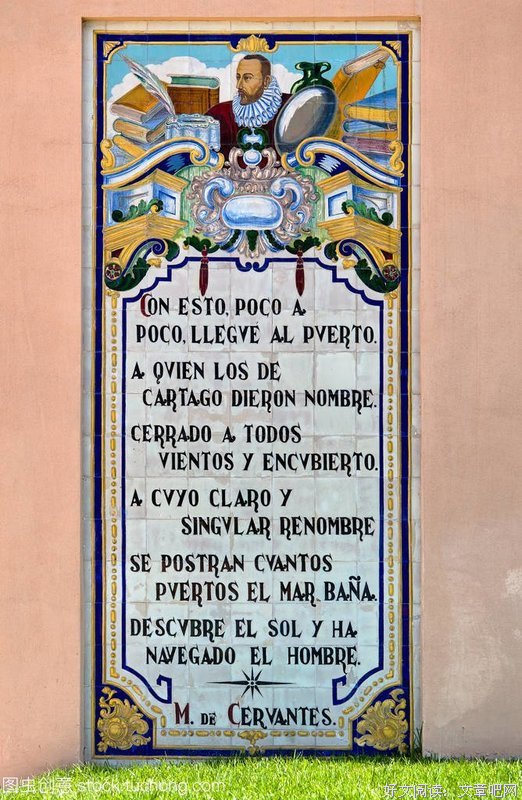 CON ESTO, POCO A
POCO, LLEGVÉ AL PVERTO.
A QVIEN LOS DE
CARTAGO DIERON NOMBRE.
CERRADO A TODOS
VIENTOS Y ENCVBIERTO.
A CVYO CLARO Y
SINGVLAR RENOMBRE
SE POSTRAN CVANTOS
PVERTOS EL MAR BAÑA.
DESCVBRE EL SOL Y HA
NAVEGADO EL HOMBRE.
M. DE CERVANTES.
图虫创意 stock.tuchong.com
好文阅读，文章吧网